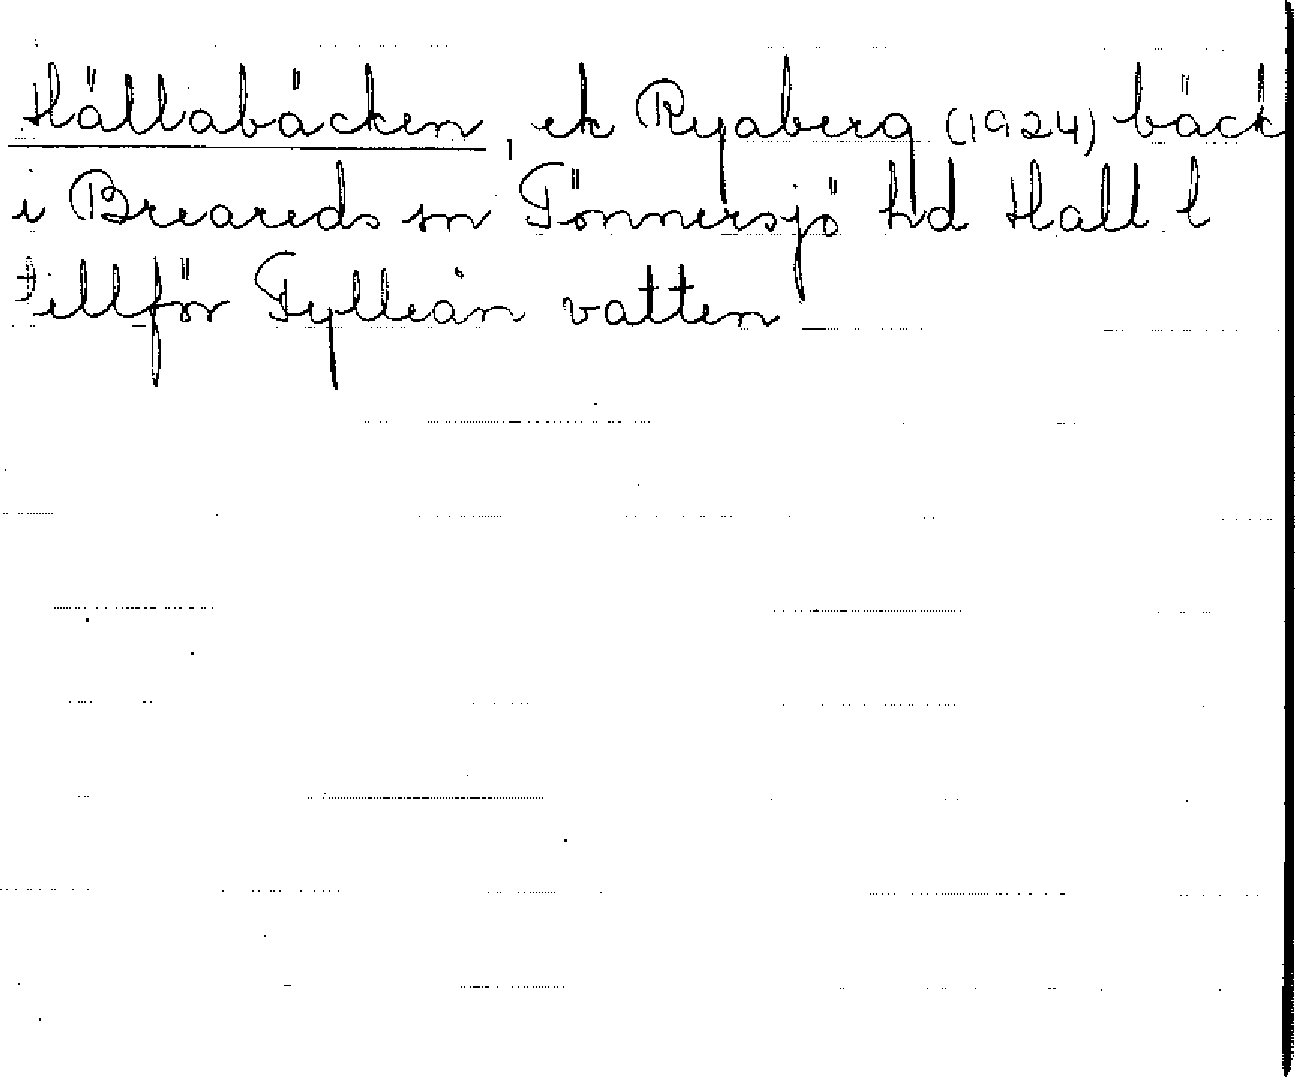 Hällabäcken, ek Ryaberg (1924) bäck
i Breareds sn Tönnersjö hd Hall l
tillför Fylleån vatten